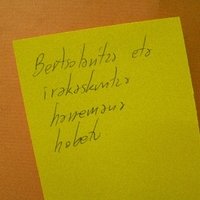 Bertsolaritza eta
irakaskuntza
harremana
hobetu